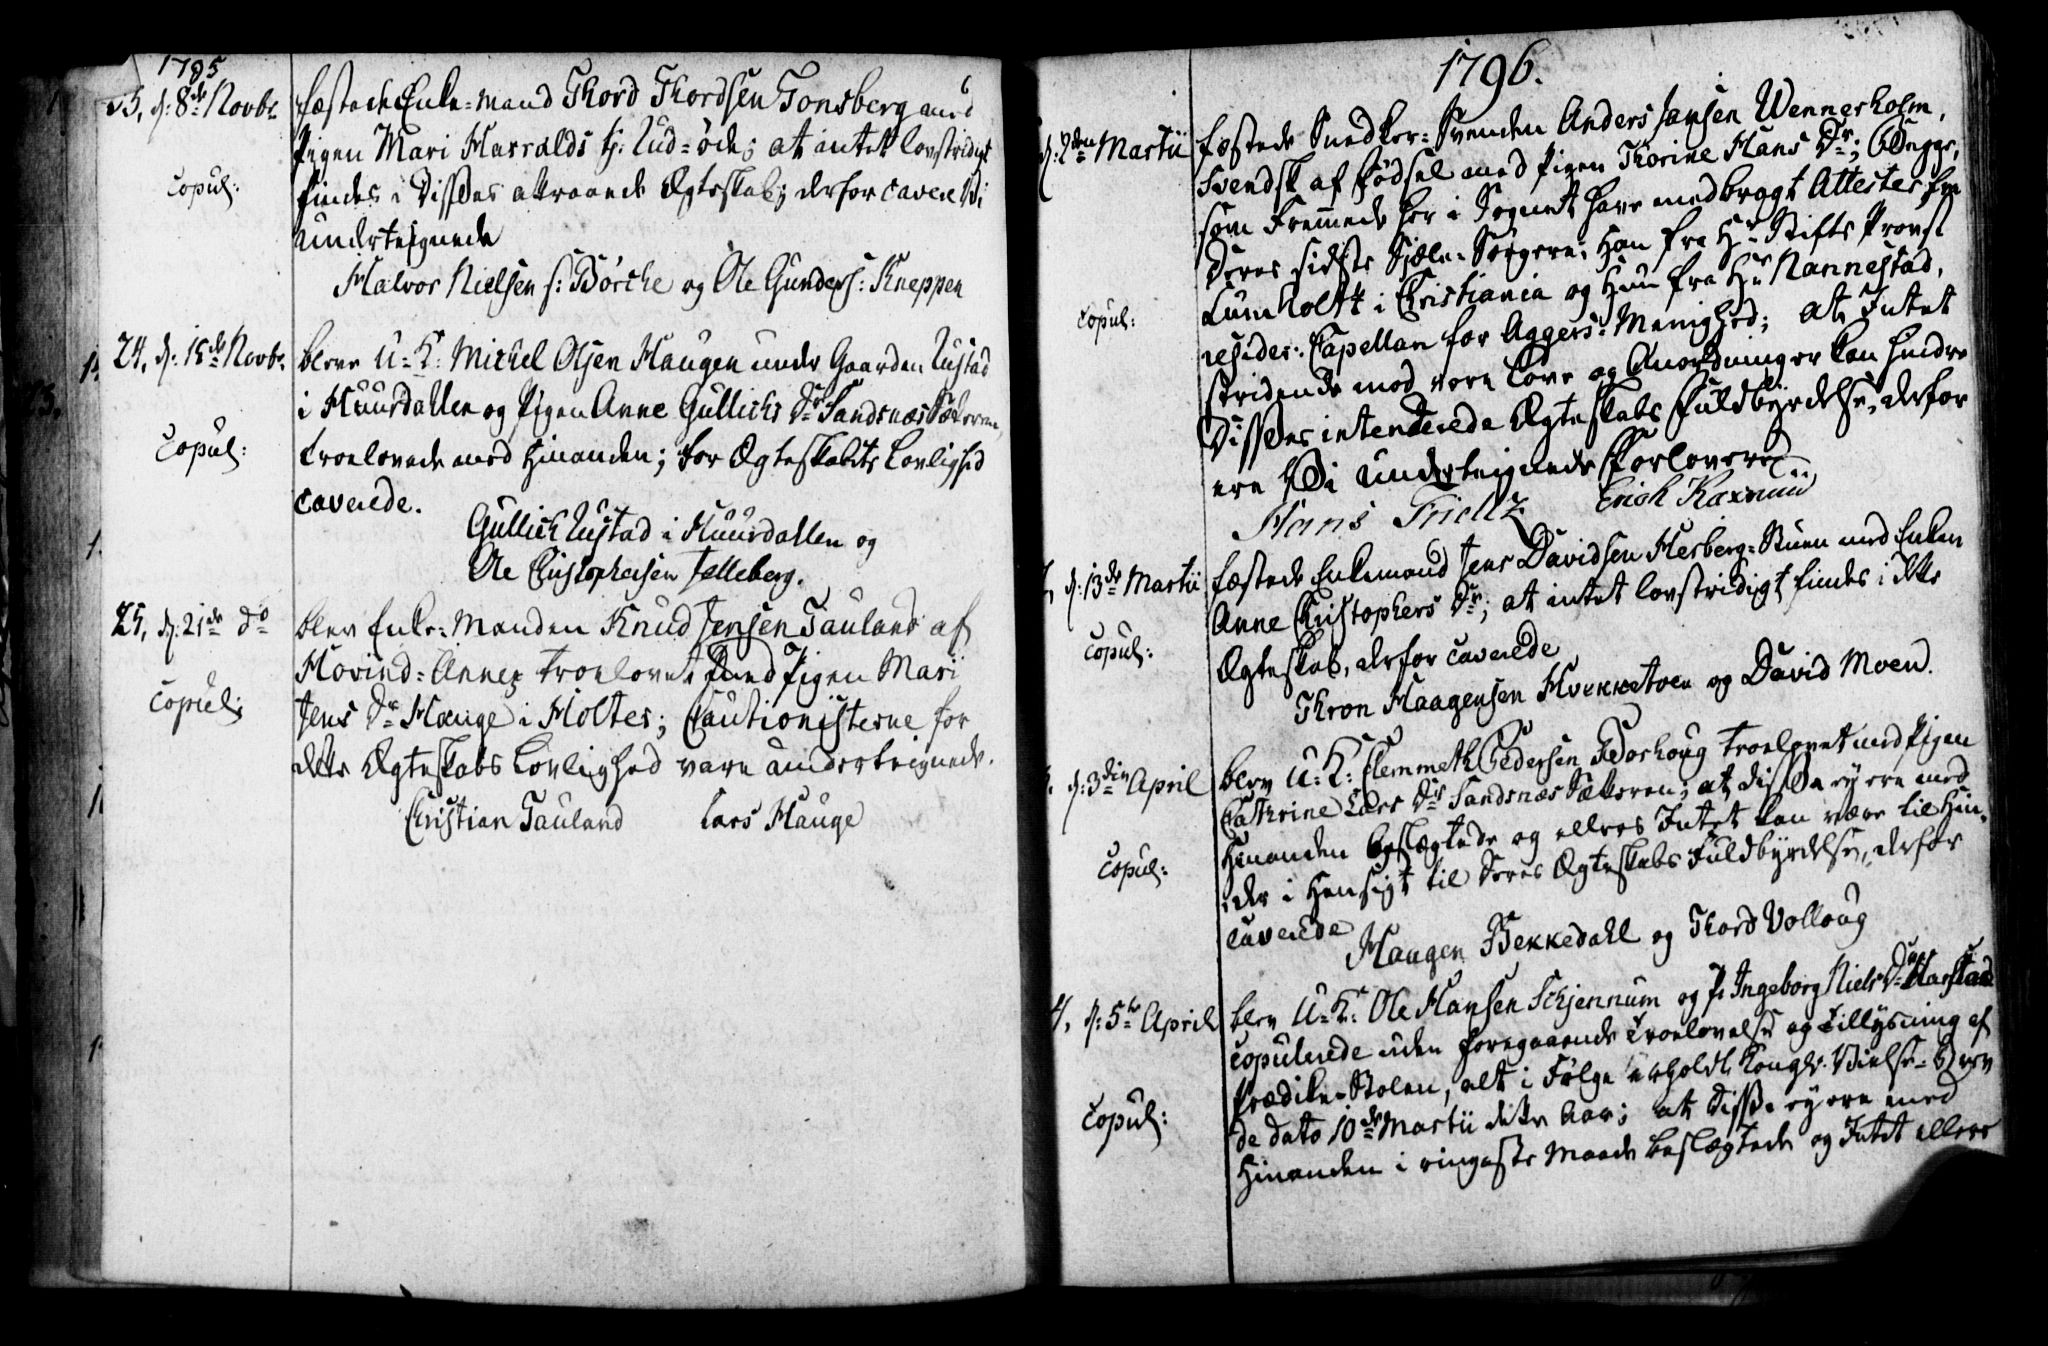 1795
23, d: 8de Novbr
fæstede Enke-Mand Thord Thordsen Tonsberg med
Pigen Mari Harralds tj: Lud-øde; at intet lovstridigt
Copul:
findes i Disses attraaede Ægteskab; derfor cavere Vi
undertegnede
Halvor Nielsen s: Børche og Ole Gunders: Kneppen
24, d: 15de Novbr.
bleve U-K: Michel Olsen Haugen under Gaarden Rustad
i Huurdahlen og Pigen Anne Gullichs Dr Sandsnæs Sætteren,
Copul:
troelovede med Hinanden; for Ægteskabets Lovlighed
caverede.
Gullich Rustad i Huurdahlen og
Ole Christophersen Jelleberg.
25, d: 21de Do
blev Enke-Manden Knud Jensen Tauland af
Hovind-Annex troelovet med Pigen Mari
Copul:
Jens Dr Hauge i Holter; Cautionisterne for
dette Ægteskabs Lovlighed vare undertegnede.
Christian Tauland Lars Hauge
1796.
d: 2den Martii
fæstede Snedker-Svenden Anders Jansen Wennerholm,
Svendsk af Fødsel med Pigen Thorine Hans Dr;
som Fremmede her i Sognet have medbragt Attester fra
Deres sidste Sjæle-Sørgere; Han fra Hr Stifts Provst
Lumholtz i Christiania og Hun fra Hr Nannestad,
Copul:
resider: Capellan for Aggers-Menighed; at Intet
stridende mod vore Love og Anordninger kan hindre
Disses intenderede Ægteskabs Fuldbyrdelse, derfor
ere Vi undertegnede Forlovere
Hans Erich
d: 13de Martii
fæstede Enkemand Jens Davidsen Herberg-Stuen med Enken
Anne Christophers Dr; at intet lovstridigt findes i dette
Copul:
Ægteskab, derfor caverede
Thron Haagensen Hvekketoen og David Moen.
d: 3die April
blev U-K: Clemmeth Pedersen Torshoug troelovet med Pigen
Cathrine Lars Dr Sandsnæs Sætteren; at disse ej ere med
Hinanden beslægtede og ellers Intet kan være til Hin-
Copul:
der i Hensigt til Deres Ægteskabs Fuldbyrdelse, derfor
caverede
Haagen Bekkedahl og Thord Volloug
4, d: 5te April
blev U-K: Ole Hansen Schjennum og P: Ingeborg Niels Dr
copulerede uden foregaaende Troelovelse og Tillysning af
Prædike-Stolen, alt i Følge erholdt Kongl: Vielse-Brev
Copul:
de dato 10de Martii dette Aar; at Disse ej ere med
Hinanden i ringeste Maade beslægtede og Intet ellers